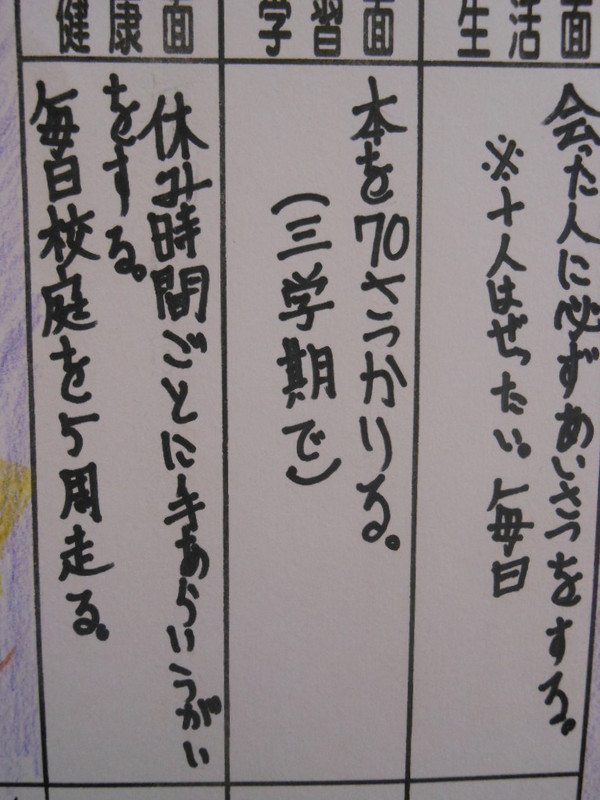 生活面
会った人に必ずあいさつをする。
※十人はぜったい。毎日
学習面
本を70さつかりる。
(三学期で)
健康面
休み時間ごとに手あらいうがい
をする。
毎日校庭を5周走る。